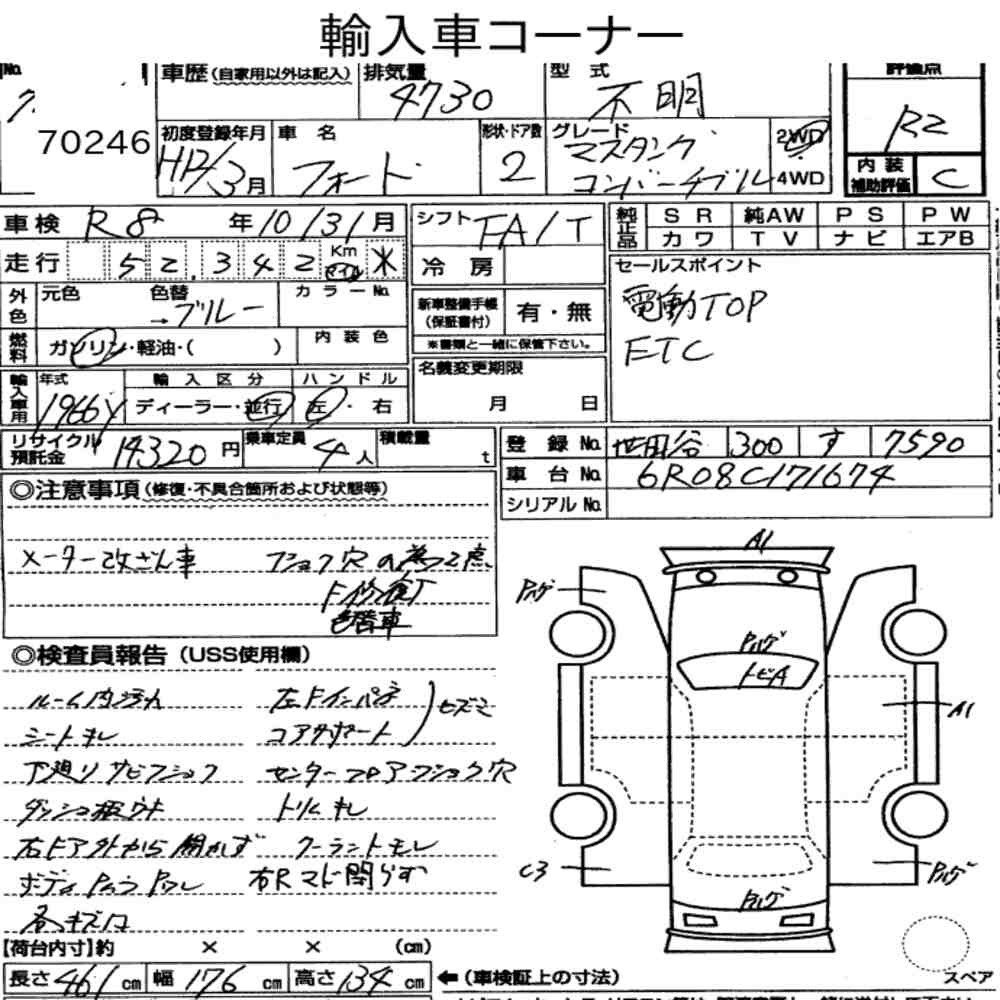 輸入車コーナー
No. 車歴(自家用以外は記入) 排気量 4730 型式 不明 評価点 R2
70246
初度登録年月 3月 車名 フォード 形状・ドア数 2 グレード マスタング コンバーチブル 2WD 4WD 内装補助評価 C
車検 R8年10/31月 シフト FA/T 純正品 SR 純AW PS PW
カワ TV ナビ エアB
走行 52,342 Km マイル 冷房
セールスポイント
電動TOP
ETC
外色 元色 色替 →ブルー カラーNo. 新車整備手帳(保証書付) 有・無
※書類と一緒に保管下さい。
燃料 ガソリン・軽油・( ) 内装色
名義変更期限
月 日
輸入車用 年式 1966y 輸入区分 ディーラー・並行 ハンドル 左・右
リサイクル預託金 14320円 乗車定員 4人 積載量 t
登録No. 世田谷 300 す 7590
車台No. 6R08C171674
シリアルNo.
◎注意事項(修復・不具合箇所および状態等)
メーター改ざん車 フショク穴の為2点
色替車
◎検査員報告(USS使用欄)
ルーム内汚れ 左Fインパネ
シートキレ コアサポート
下廻りサビフショク センターフロアーフショク穴
ダッシュ板ウキ トリムキレ
右ドア外から開かず クーラントモレ
右Rマド閉らず
各キズ
A1
トビA
A1
C3
【荷台内寸】約 × × (cm)
長さ 461 cm 幅 176 cm 高さ 134 cm ←(車検証上の寸法)
スペア